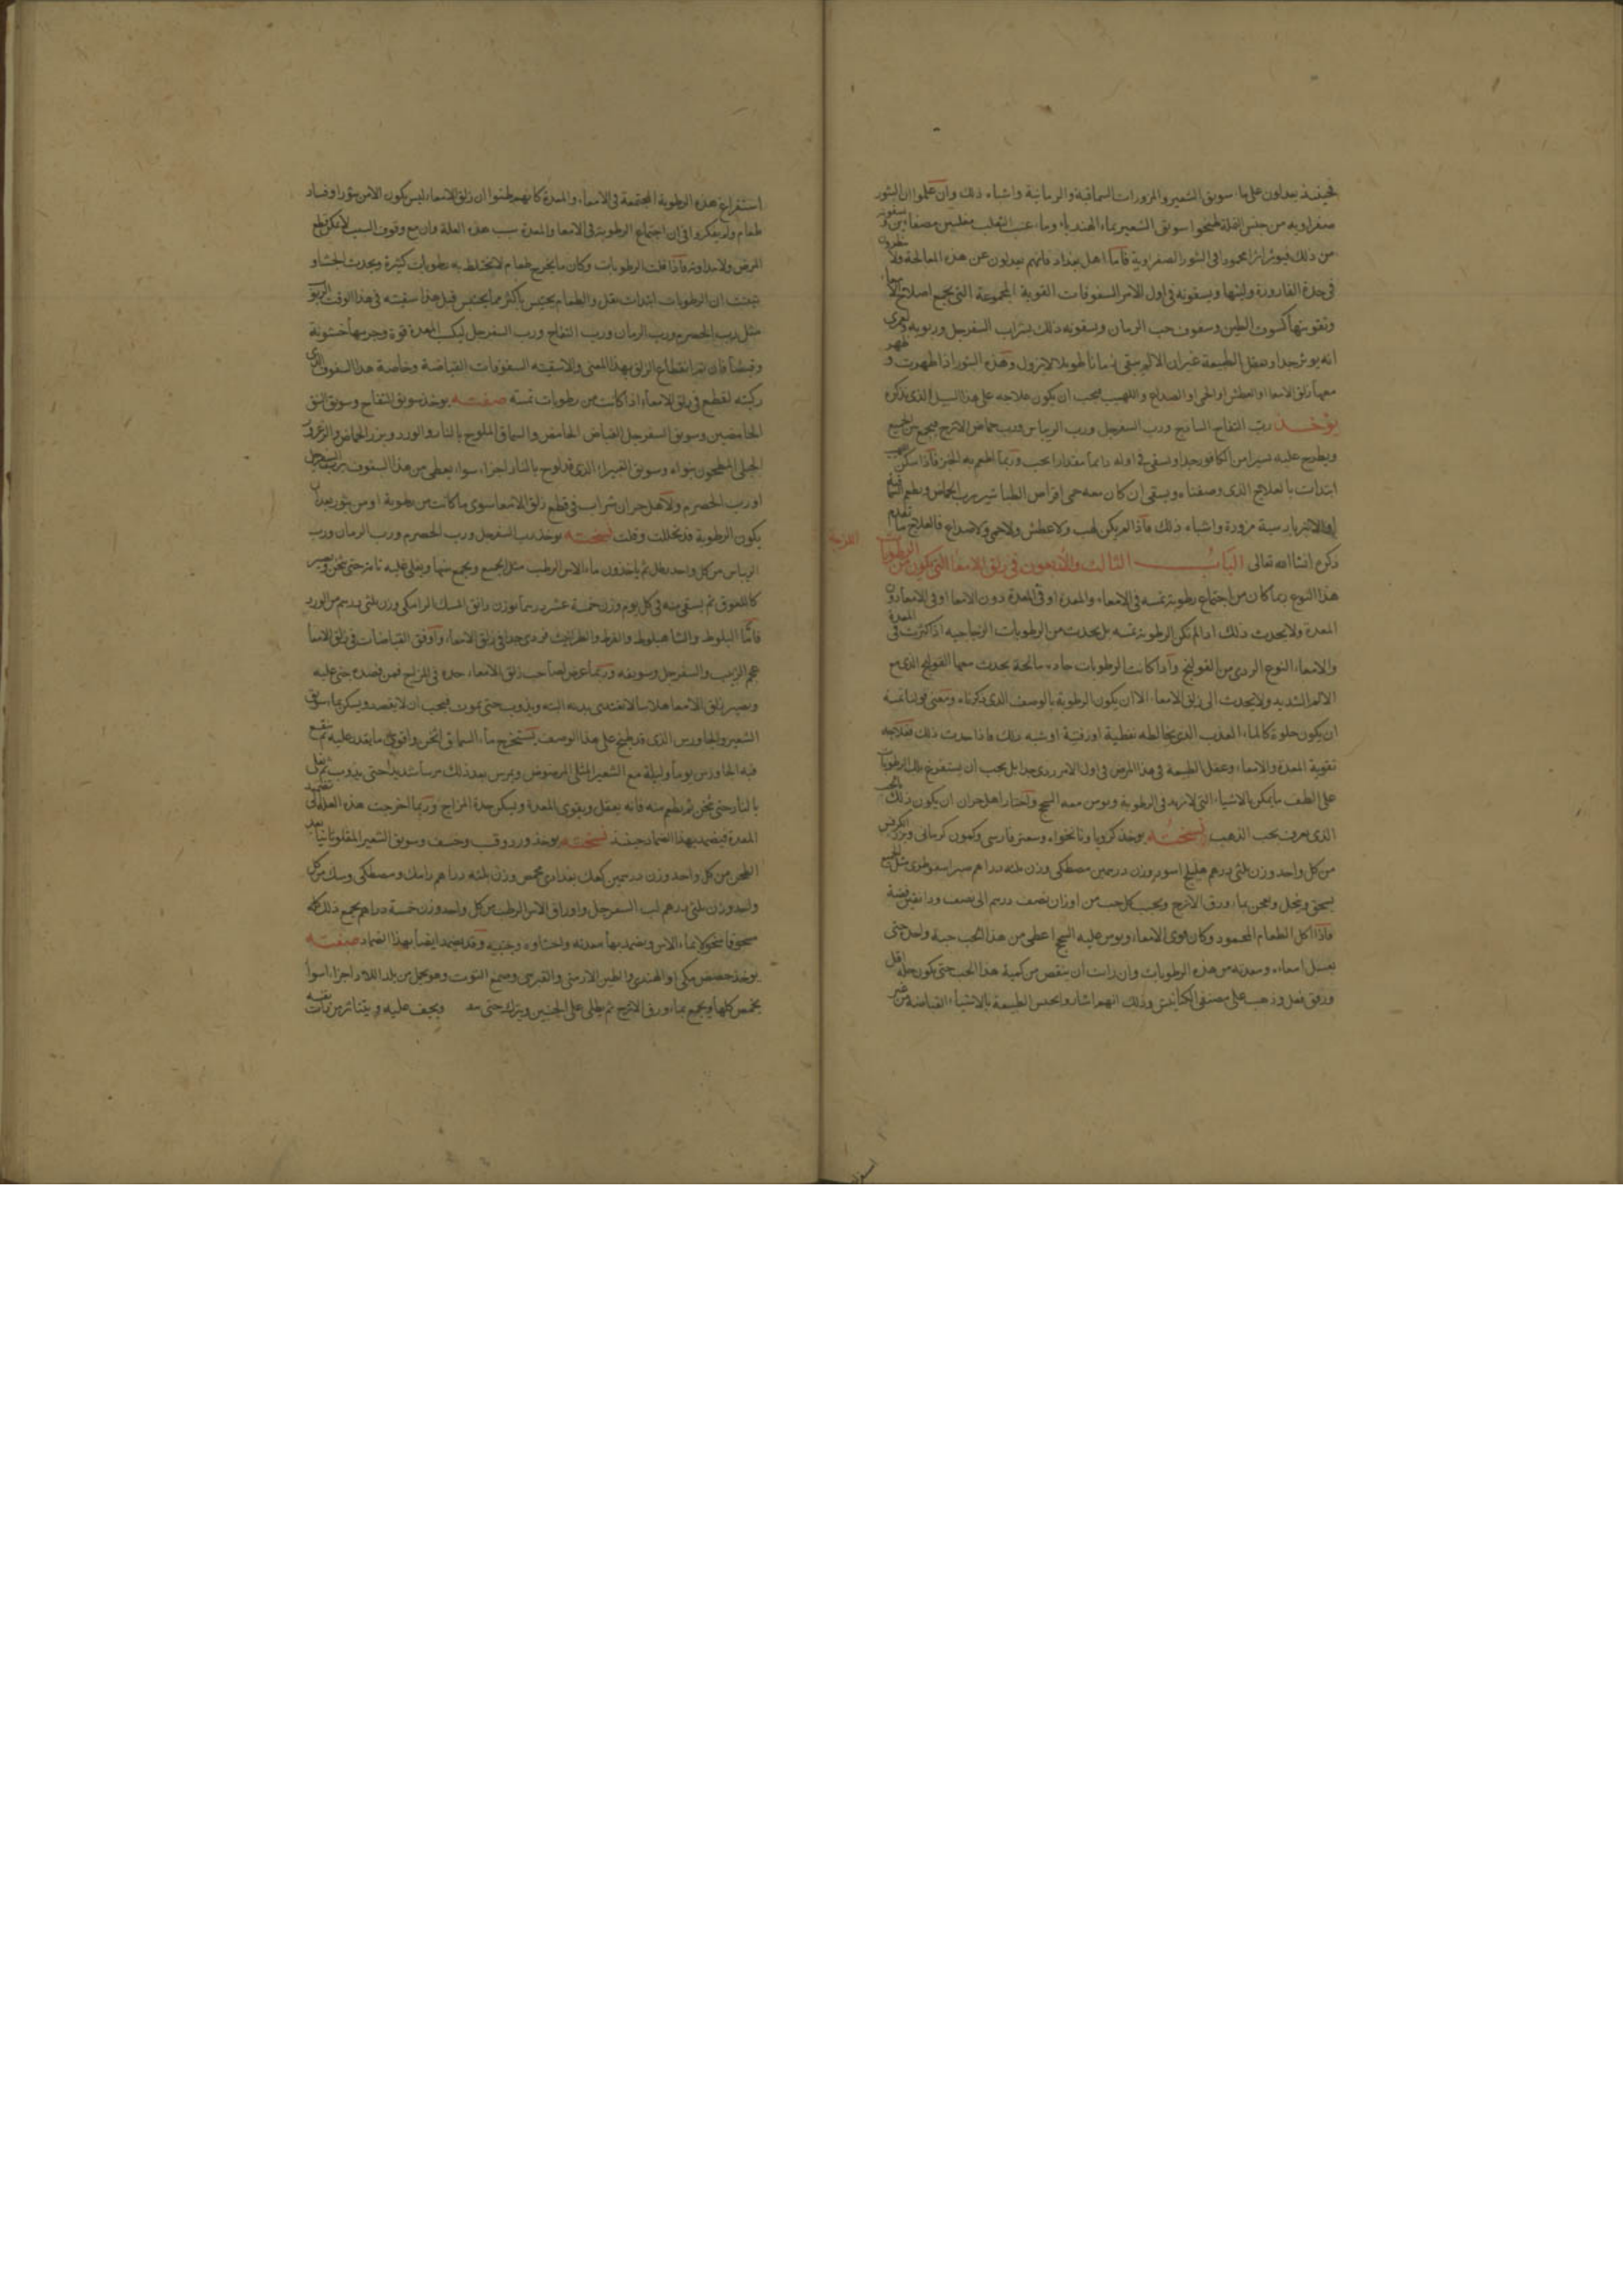 فحينئذ يعدلون على ماء سويق الشعير والمزورات السماقية والرمانية واشباه ذلك وان علموا ان البثور
صفراويه من جنس النملة طبخوا سويق الشعير بماء الهندباء وماء عنب الثعلب مغليين مصفايين
من ذلك فيوثر اثرا محمودا فى البثور الصفراوية فاما اهل بغداد فانهم يعدلون عن هذه المعالجة ولا ينظرون
فى حدة القارورة ولينها ويسقونه فى اول الامر السفوفات القوية المجموعة التى تجمع اصلاح الامعاء
وتقويتها كسفوف الطين وسفوف حب الرمان ويسقونه ذلك بشراب السفرجل وربوبه ولعمرى
انه يوثر جدا ويعقل الطبيعة غير ان الالم يبقى زمانا طويلا لا يزول وهذه البثور اذا ظهرت و
معها زلق الامعا او العطش او الحمى او الصداع واللهيب فيجب ان يكون علاجه على هذا السبيل الذى نذكره
يوخذ رب التفاح الساذج ورب السفرجل ورب الريباس ورب حماض الاترج فيجمع بين الجميع
ويطرح عليه يسيرا من الكافور جدا ويسقى فى اوله دائما مقدارا يجب وربما اطعم به الخبز فاذا سكن
ابتدات بالعلاج الذى وصفناه ويسقى ان كان معه حمى اقراص الطباشير برب الحماض ويطعم
او الانبرباريسية مزورة واشباه ذلك فاذا لم يكن لهب ولا عطش ولا حمى ولا صداع فالعلاج ما تقدم
ذكره انشاالله تعالى الباب الثالث والاربعون فى زلق الامعا التى تكون من الرطوبات
هذا النوع ربما كان من اجتماع رطوبة تفسه فى الامعاء والمعدة او فى المعدة دون الامعا او فى الامعا دون
المعدة ولا يحدث ذلك اذا لم تكن الرطوبة تفسه بل يحدث من الرطوبات الزجاجيه اذا كثرت فى المعدة
والامعاء النوع الردى من القولنج واذا كانت الرطوبات حاده مالحة يحدث معها القولنج الذى مع
الالم الشديد ولا يحدث الى زلق الامعاء الا ان يكون الرطوبة بالوصف الذى ذكرناه ومعنى قولنا تفسه
ان يكون حلوة كالماء العذب الذى يخالطه نفطية او زفتية او شبه ذلك فاذا حدث ذلك فعلاجه
تقوية المعدة والامعاء وعقل الطبيعة فى هذا المرض فى اول الامر ردى جدا بل يجب ان يستفرغ تلك الرطوبات
على الطف ما يمكن بالاشياء التى لا تزيد فى الرطوبة ويومن معه السحج واختار اهل حران ان يكون ذلك بالحب
الذى يعرف بحب الذهب نسخته يوخذ كرويا ونانخواه وسعتر فارسى وكمون كرمانى وبزر الكرفس
من كل واحد وزن ثلثى درهم هليلج اسود وزن درهمين مصطكى وزن ثلثه دراهم صبر اسقوطرى مثل الجميع
يسحق وينخل ويعجن بماء ورق الاترج ويحبب كل حب من اوزان نصف درهم الى نصف ودانقين
فاذا اكل الطعام المحمود وكان قوى الامعاء ويومن عليه السحج اعطى من هذا الحب حبة واحدة حتى
يغسل امعاءه ومعدته من هذه الرطوبات وان رايت ان ينقص من كمية هذا الحب حتى يكون حله اقل
ورفق فعل وذهب على مصنفى الكنانيش وذلك انهم اشاروا بحبس الطبيعة بالاشياء القباضة من غير
استفراغ هذه الرطوبة المجتمعة فى الامعاء والمعدة كانهم ظنوا ان زلق الامعاء ليس يكون الا من بثور او فساد
طعام ولم يفكروا فى ان اجتماع الرطوبة فى الامعا والمعدة سبب هذه العلة وان مع وقوف السبب لا يمكن قطع
المرض ولا مداوته فاذا قلت الرطوبات وكان ما يخرج طعام لا يختلط به رطوبات كثيرة ويحدث الجشاو
تبينت ان الرطوبات ابتدات تقل والطعام يحتبس باكثر مما يحتبس قبل هذا سقيته فى هذا الوقت الربوب
مثل رب الحصرم ورب الرمان ورب التفاح ورب السفرجل ليكسب المعدة قوة وجرمها خشونة
وقبضا فان تم انقطاع الزلق بهذا المعنى والا سقيته السفوفات القباضة وخاصة هذا السفوف الذى
ركبته لقطع زلق الامعاء اذا كانت من رطوبات تفسة صفته يوخذ سويق التفاح وسويق النبق
الحامضين وسويق السفرجل القباض الحامض والسماق الملوح بالنار والورد وبزر الحماض والزعرور
الجبلى المطحون بنواه وسويق الغبيراء الذى قد لوح بالنار اجزاء سواء يعطى من هذا السفوف برب السفرجل
او رب الحصرم ولاهل حران شراب فى قطع زلق الامعا سوى ما كانت من رطوبة او من بثور بعد ان
يكون الرطوبة قد تحللت وقلت نسخته يوخذ رب السفرجل ورب الحصرم ورب الرمان ورب
الريباس من كل واحد رطل ثم ياخذون ماء الاس الرطب مثل الجميع ويجمع منها ويغلى غليه تامة حتى يثخن ويصير
كاللعوق ثم يسقى منه فى كل يوم وزن خمسة عشر درهما بوزن دانق المسك الرامكى وزن ثلثى درهم من الورد
فاما البلوط والشاهبلوط والقرظ والطراثيث فردى جدا فى زلق الامعاء واوفق القباضات فى زلق الامعا
عجم الزبيب والسفرجل وسويقه وربما عرض لصاحب زلق الامعاء حدة فى المزاج فمن فصده جنى عليه
ويصير زلق الامعا هلاسا لا تغتذى بدنه البته ويذوب حتى يموت فيجب ان لا يفصد ويسكن بماء سويق
الشعير والجاورس الذى قد طبخ على هذا الوصف يستخرج ماء السماق اثخن واقوى ما يقدر عليه ثم ينقع
فيه الجاورس يوما وليلة مع الشعير المقلى المرضوض ويمرس بعد ذلك مرسا شديدا حتى يذوب ثم يغلى
بالنار حتى يثخن ثم يطعم منه فانه يعقل ويقوى المعدة ويسكن حدة المزاج وربما اخرجت هذه العلة الى تضميد
المعدة فيضمد بهذا الضماد حينئذ نسخته يوخذ ورد وقسب وخشف وسويق الشعير المقلو ثانيا بعد
الطحن من كل واحد وزن درهمين كعك بغدادى محمص وزن ثلثه دراهم رامك ومصطكى وسك من كل
واحد وزن ثلثى درهم لب السفرجل واوراق الاس الرطب من كل واحد وزن خمسة دراهم يجمع ذلك كله
مسحوقا منخولا بماء الاس ويضمد بها معدته واحشاوه وجنبيه وقد يضمد ايضا بهذا الضماد صفته
يوخذ حضض مكى او الهندى والطين الارمنى والقبرسى وصمغ التوت وهو يحمل من بلد اللار اجزاء سوا
يحمص كلها ويجمع بماء ورق الاترج ثم يطلى على الجنبين ويترك حتى ويجف عليه ويتناثر من ذات نفسه